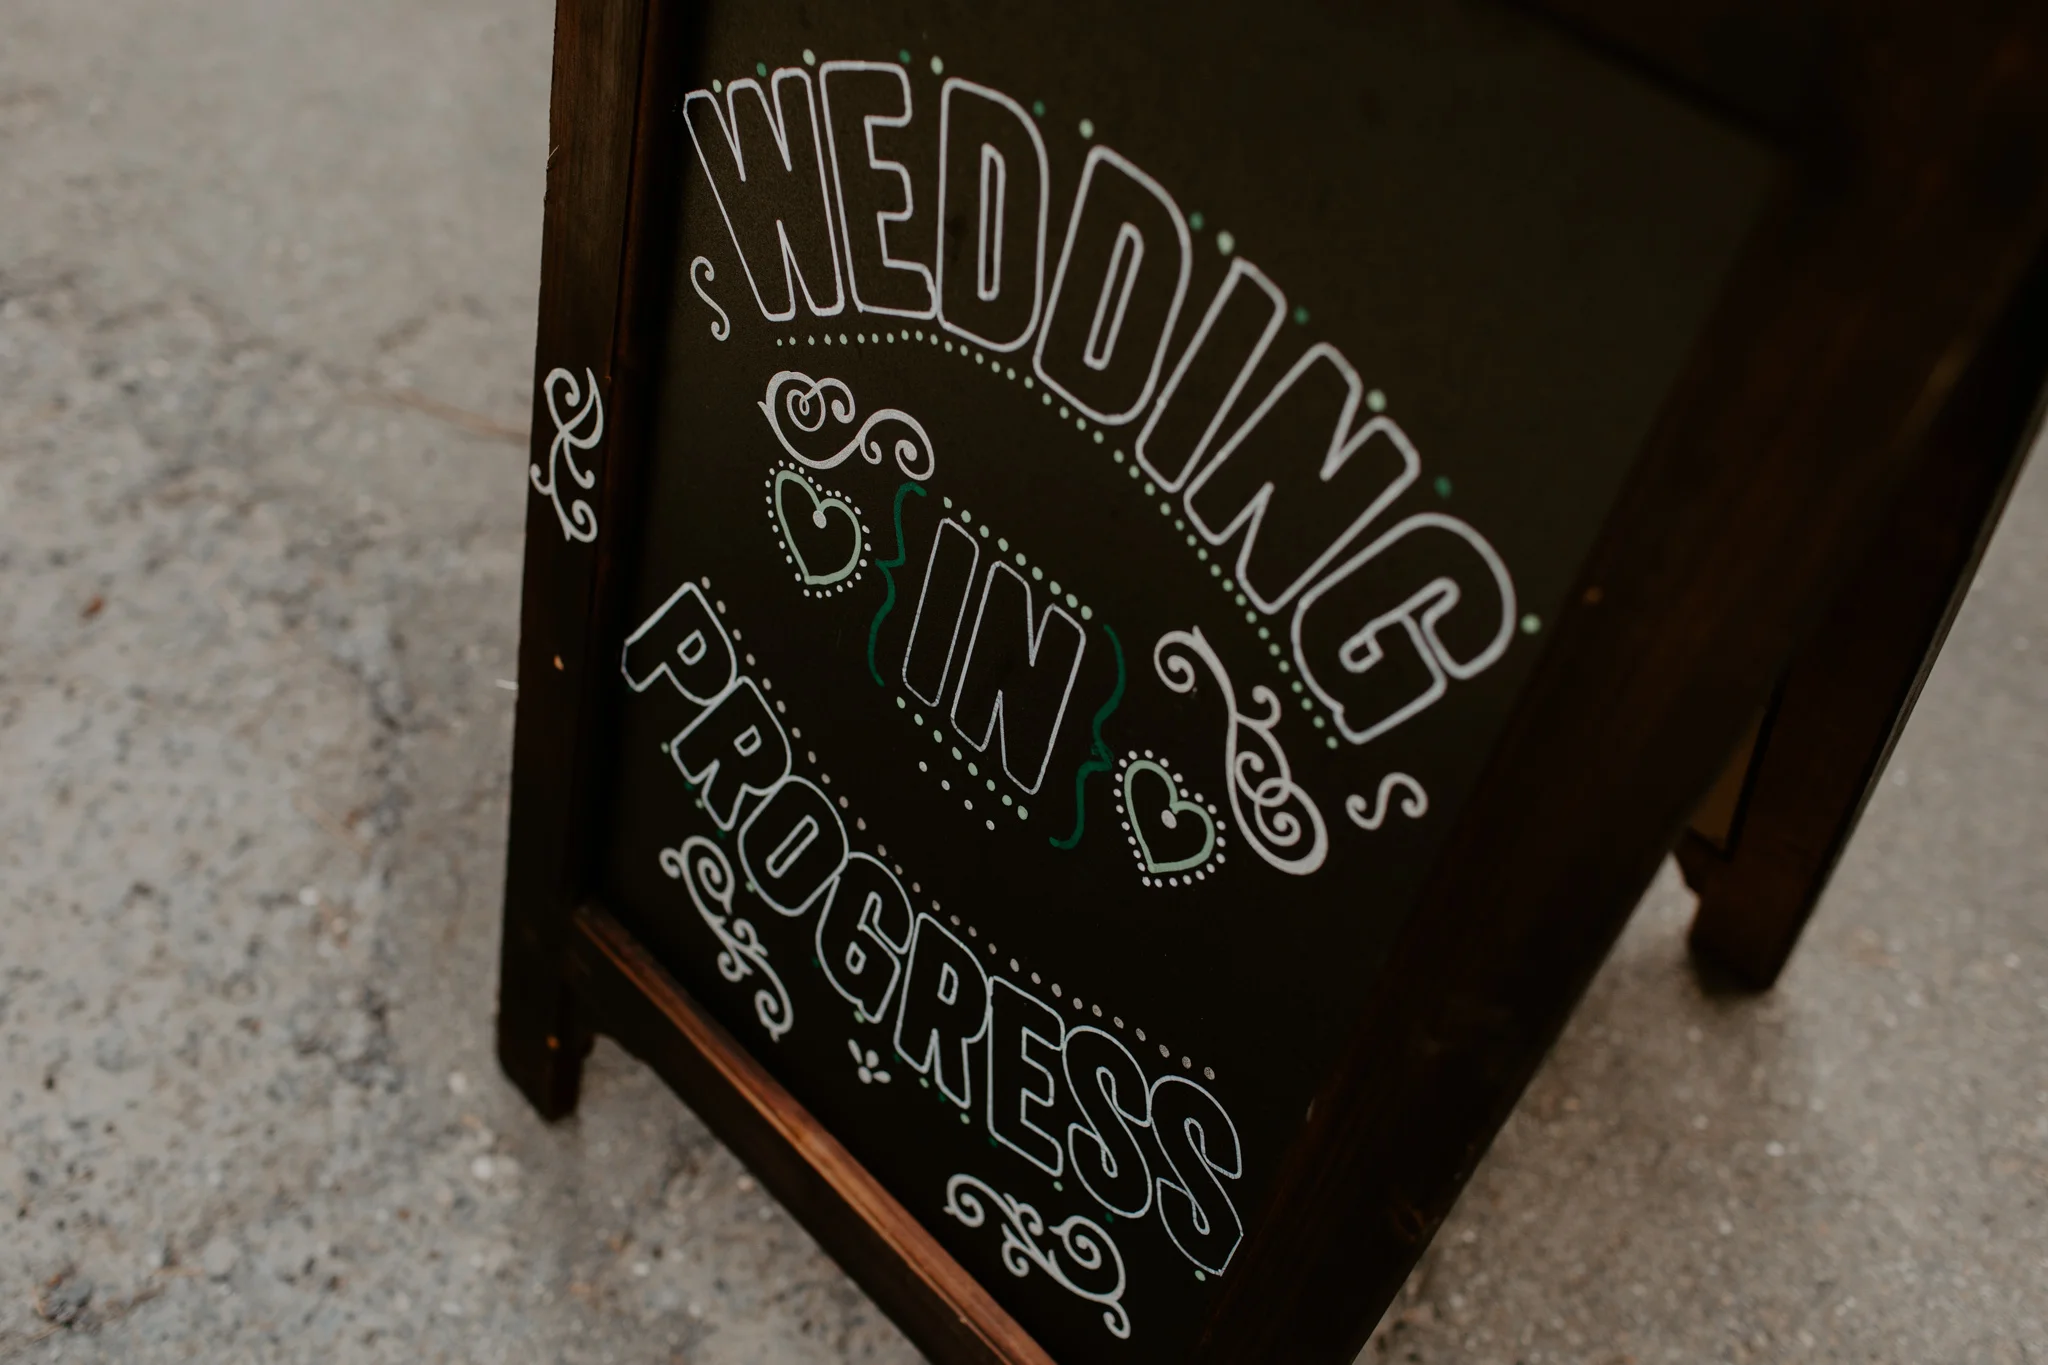 WEDDING
IN
PROGRESS